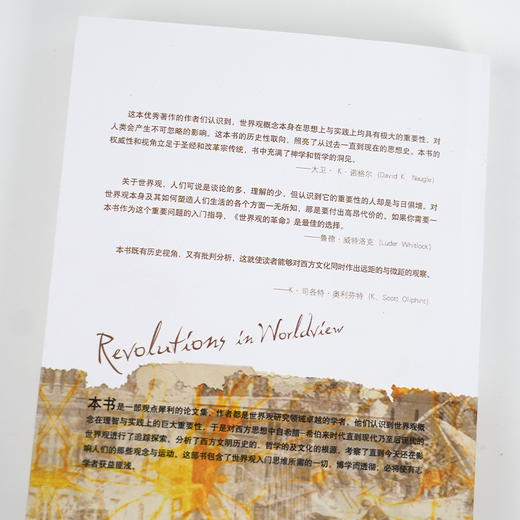 这本优秀著作的作者们认识到，世界观概念本身在思想上与实践上均具有极大的重要性，对
人类会产生不可忽略的影响。这本书的历史性取向，照亮了从过去一直到现在的思想史。本书的
权威性和视角立足于圣经和改革宗传统，书中充满了神学和哲学的洞见。
——大卫· K·诺格尔 (David K. Naugle)
关于世界观，人们可说是谈论的多，理解的少，但认识到它的重要性的人却是与日俱增。对
世界观本身及其如何塑造人们生活的各个方面一无所知，那是要付出高昂代价的。如果你需要一
本书作为这个重要问题的入门指导，《世界观的革命》是最佳的选择。
——鲁德·威特洛克 (Luder Whitlock)
本书既有历史视角，又有批判分析，这就使读者能够对西方文化同时作出远距的与微距的观察。
——K·司各特·奥利芬特 (K. Scott Oliphint)
Revolutions in Worldview
本书是一部观点犀利的论文集，作者都是世界观研究领域卓越的学者，他们认识到世界观概
念在理智与实践上的巨大重要性，于是对西方思想中自希腊-希伯来时代直到现代乃至后现代的
世界观进行了追踪探索，分析了西方文明历史的、哲学的及文化的根源，考察了直到今天还在影
响人们的那些观念与运动。这部书包含了世界观入门思维所需的一切，博学而透彻，必将使有志
学者获益匪浅。